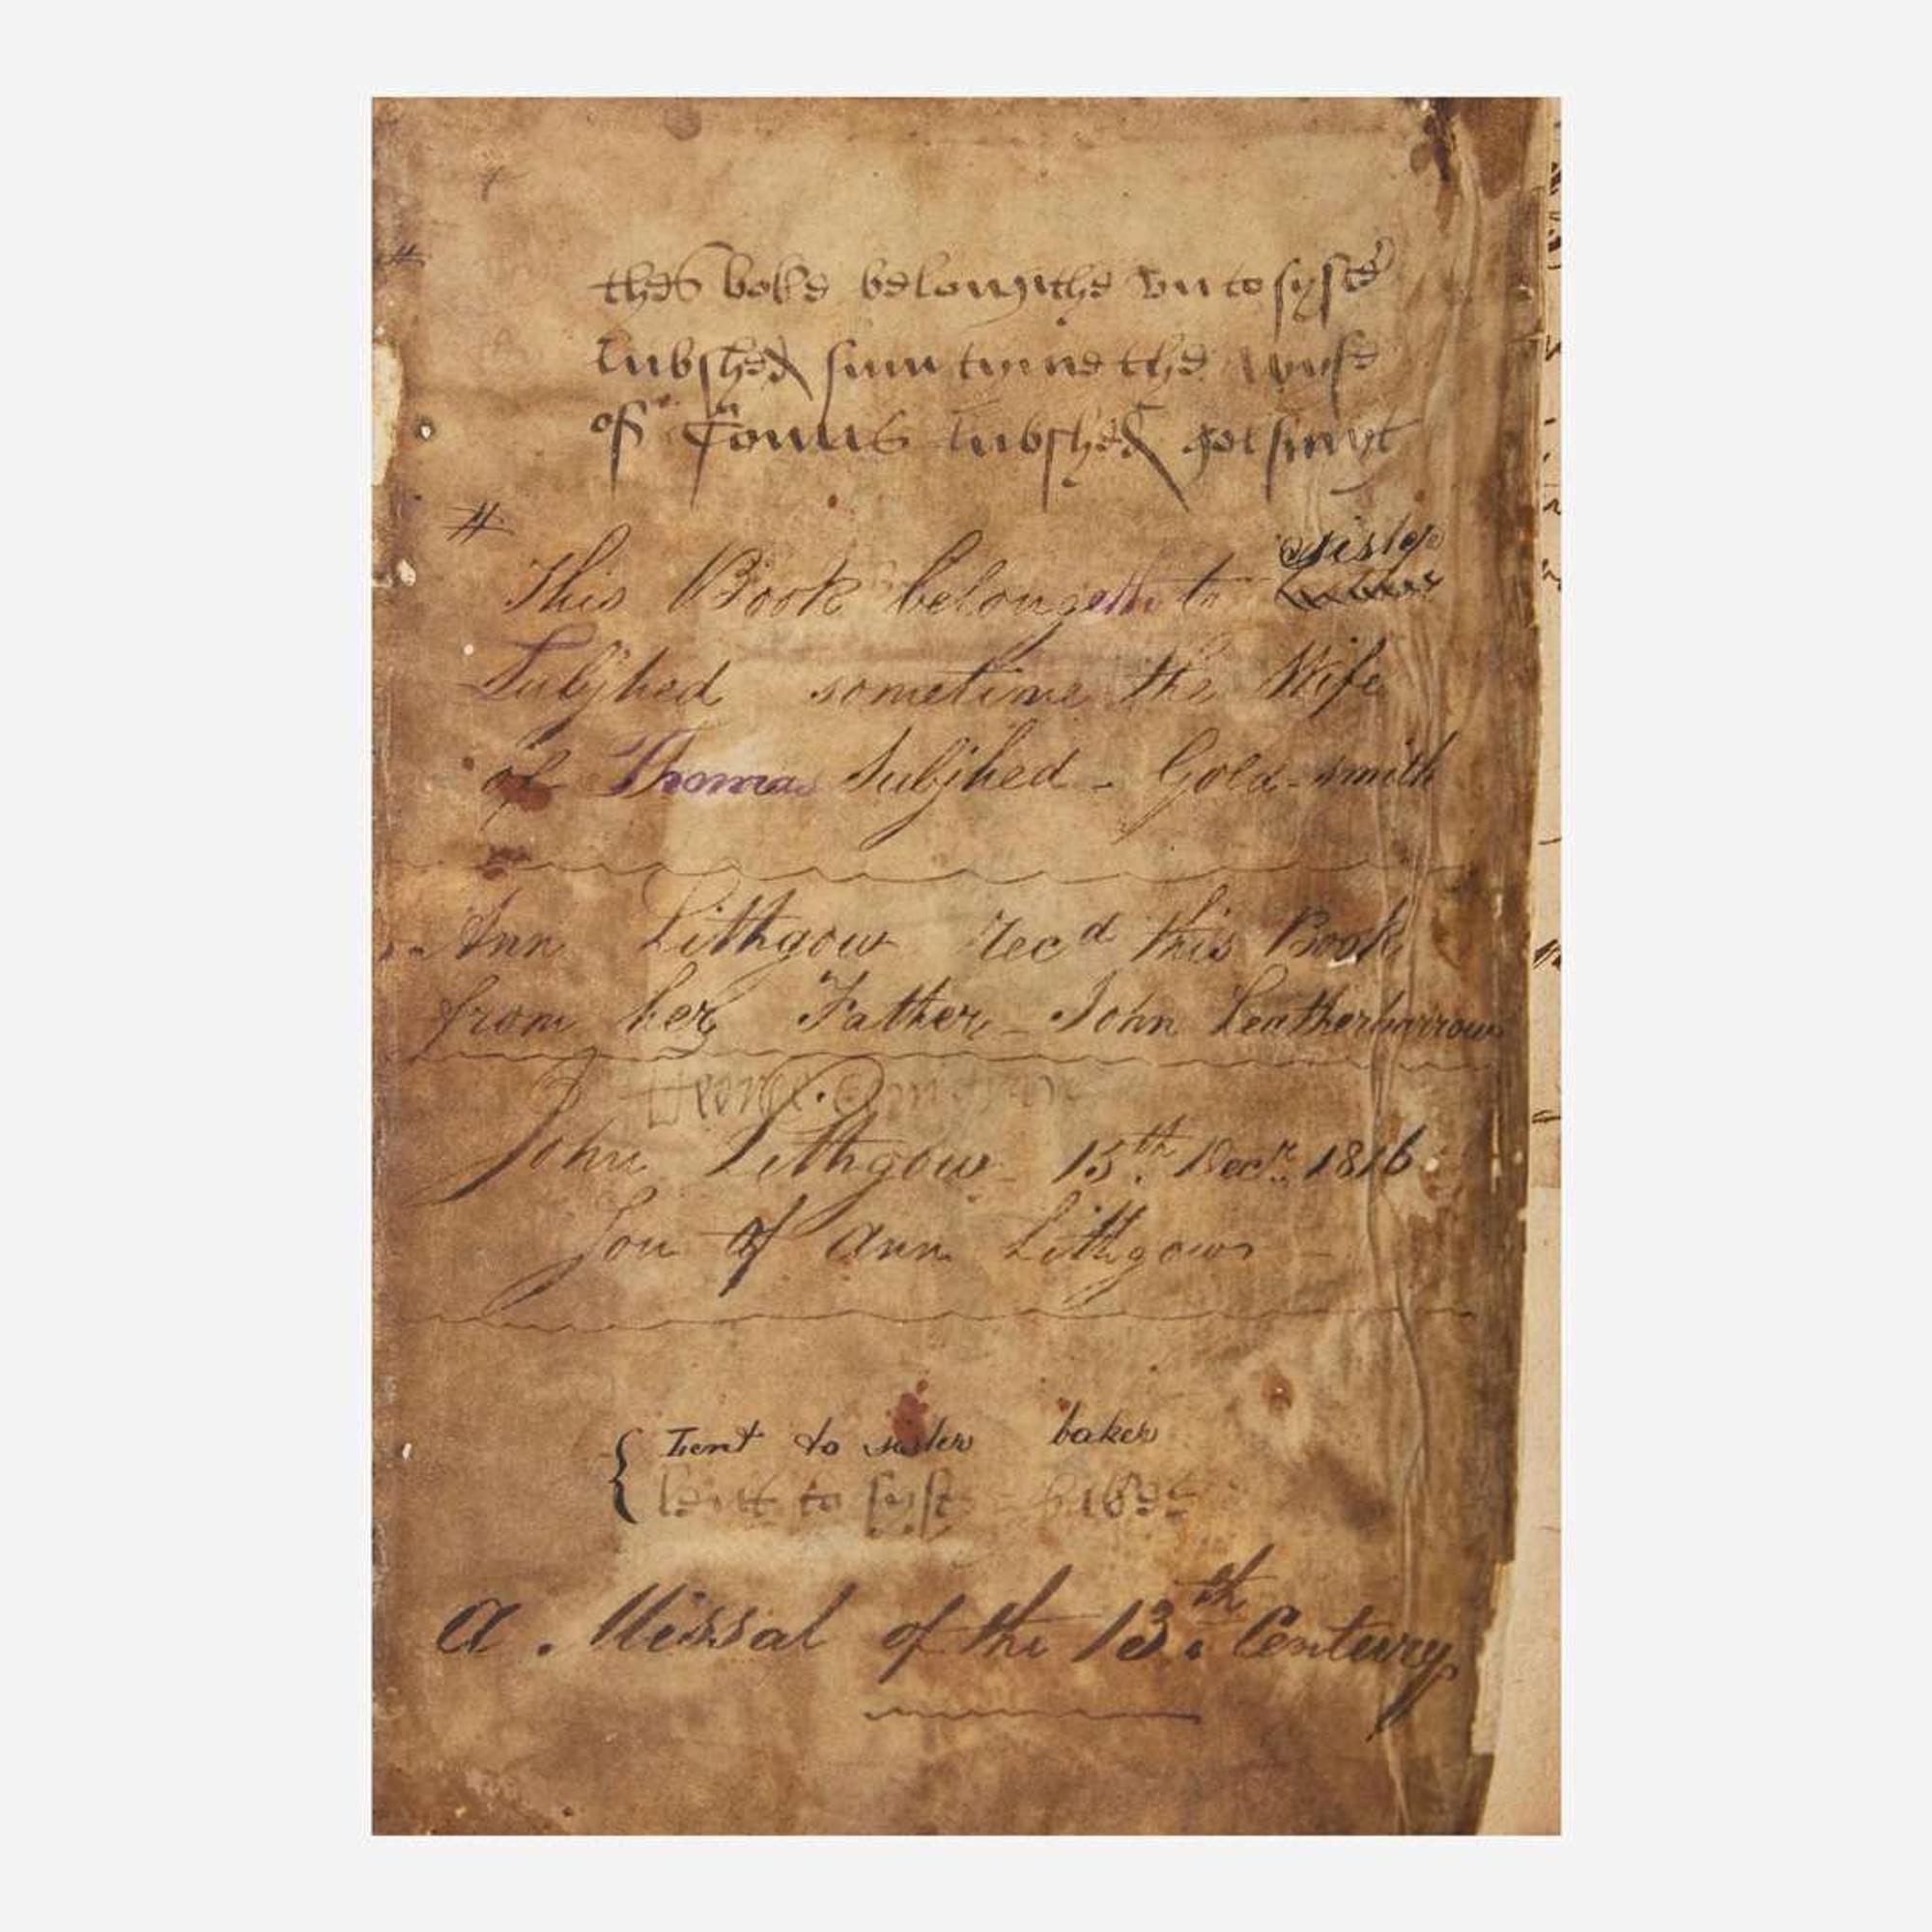 thes boke belongithe vnto syster
lubshed sum tyme the wyfe
of Tomas lubshed golsmyt
#
sister
This Book belongeth to
Lubshed sometime the Wife
of Thomas Lubshed - Gold-smith
Ann Lithgow recd this Book
from her Father - John Leatherbarrow
John Lithgow 15th. Decr. 1816
Son of Ann Lithgow -
Lent to sister baker
lent to syster baker
a Missal of the 13th. Century